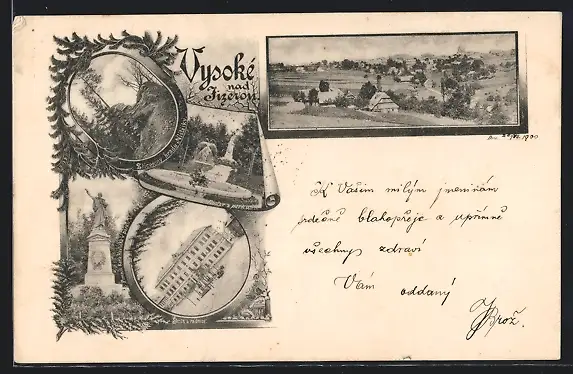 Vysoké
nad
Jizerou
1900
K Vašim milým jmeninám
srdečně blahopřeje a upřímně
všechny zdraví
Vám oddaný
J Brož.